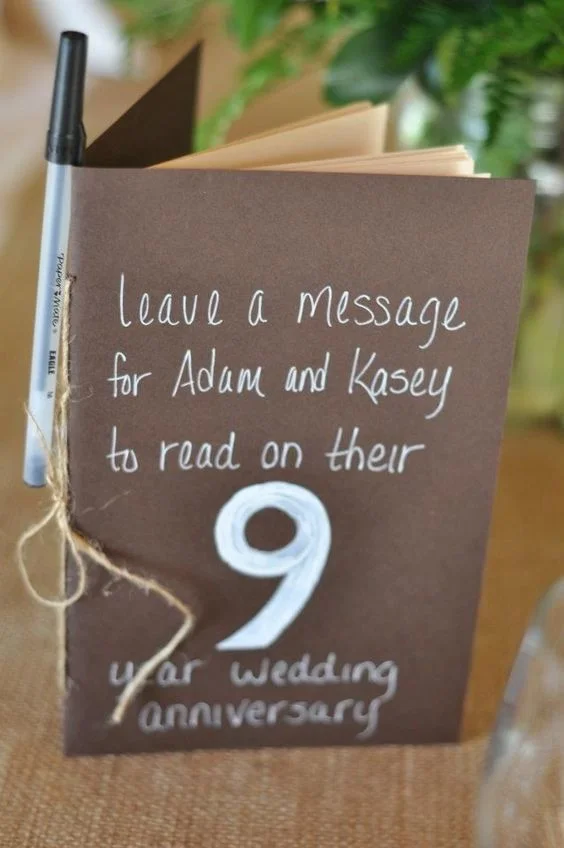 leave a message
for Adam and Kasey
to read on their
9
year wedding
anniversary
paper mate
EAGLE